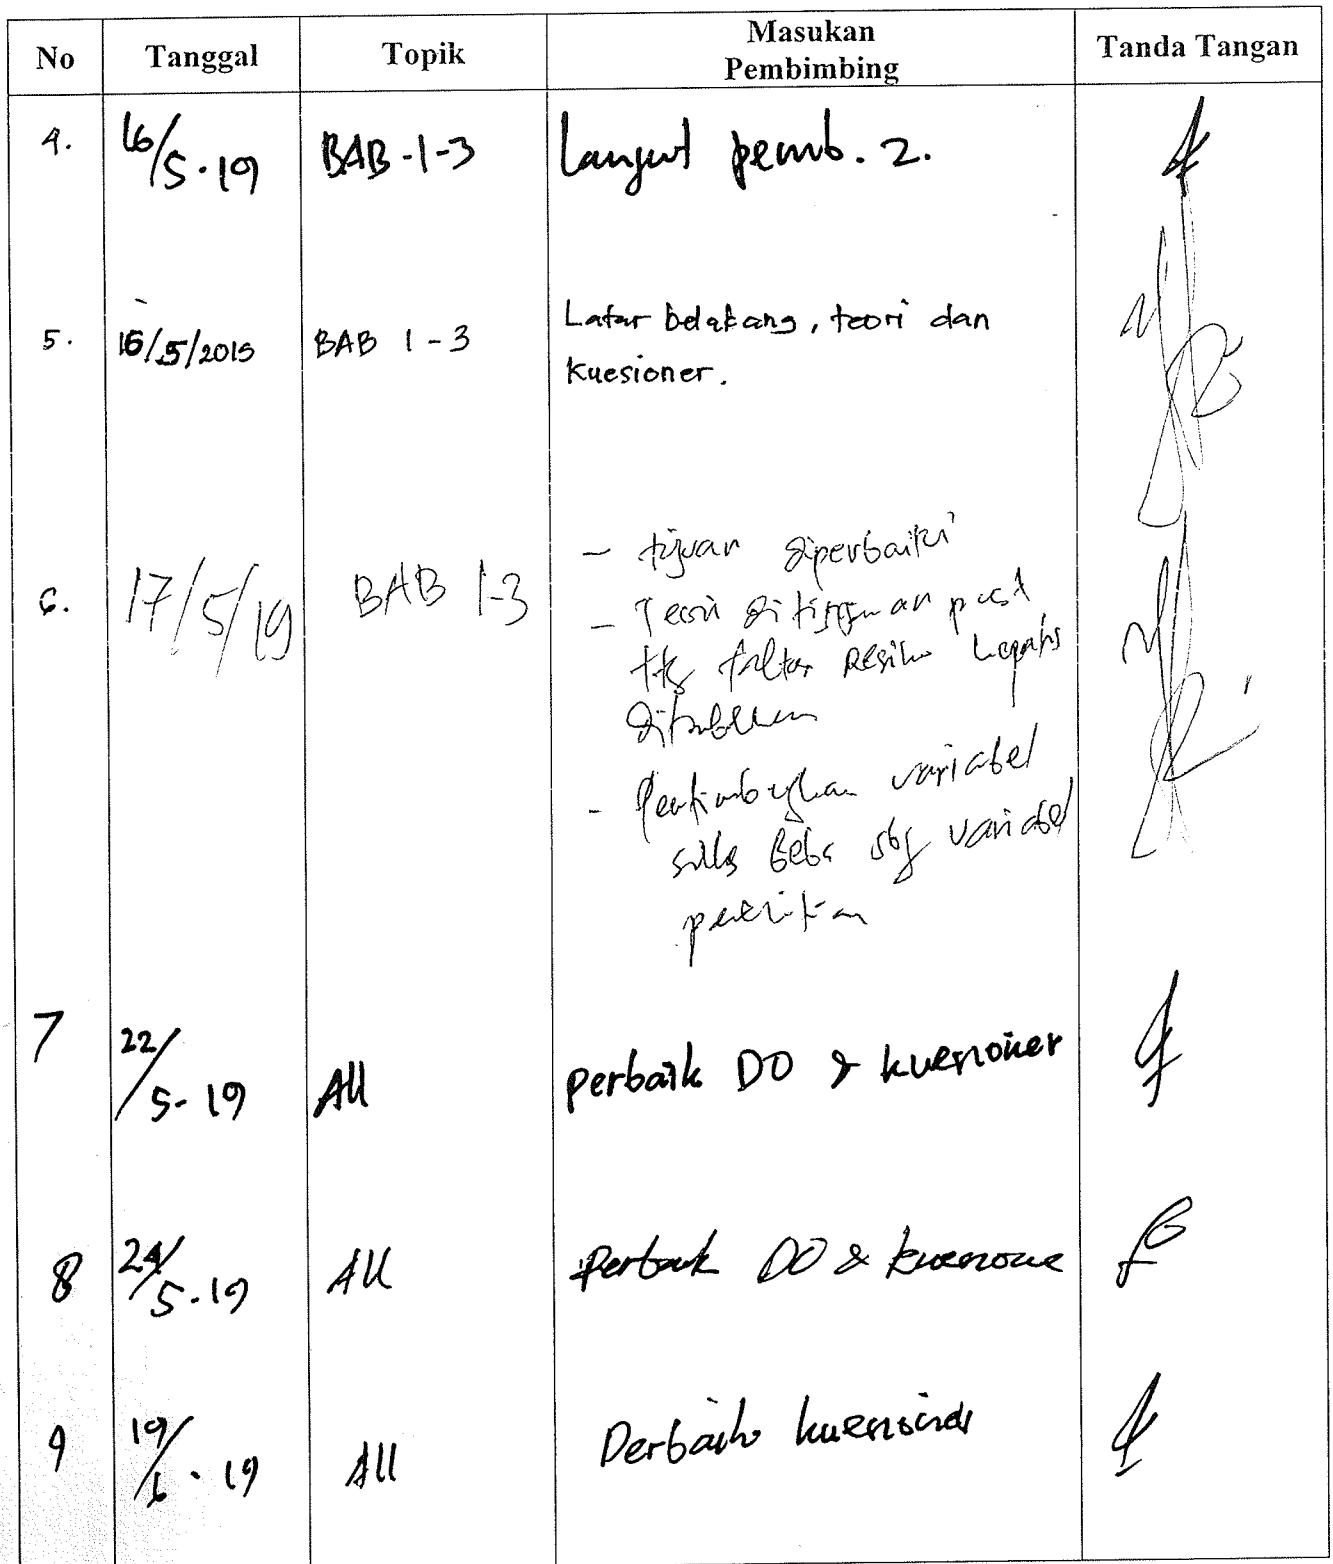 No Tanggal Topik Masukan Pembimbing Tanda Tangan
4. 16/5-19 BAB-1-3 Langut pemb. 2.
5. 15/5/2019 BAB 1-3 Latar belakang, teori dan
kuesioner.
6. 17/5/19 BAB 1-3 - tujuan diperbaiki
- Teori di tinjauan pust
ttg faktor resiko
- variabel
sbg variabel
7 22/5-19 All perbaik DO & kuesioner
8 24/5-19 All Perbaik DO & kuesione
9 19/6-19 All Perbaik kuesioner